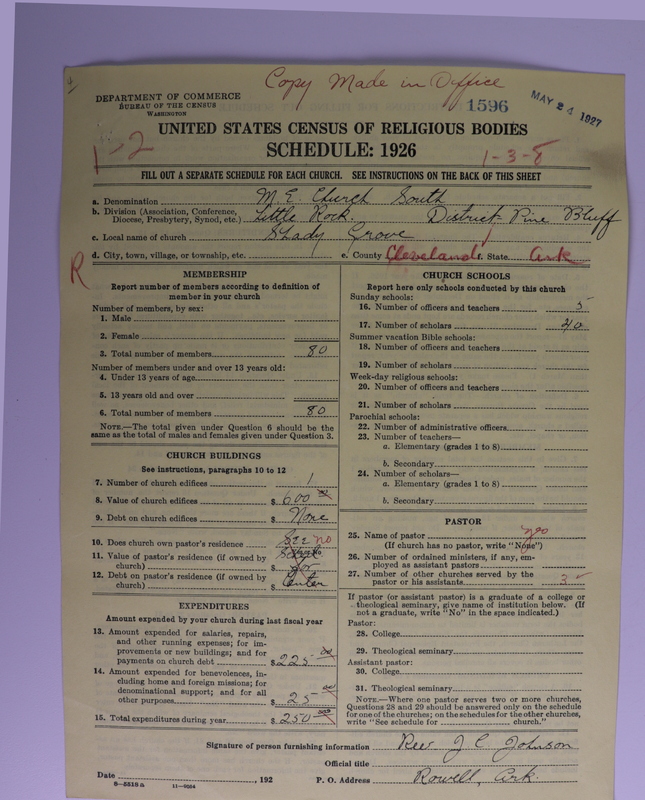 4
Copy Made in Office
DEPARTMENT OF COMMERCE
BUREAU OF THE CENSUS
WASHINGTON
1596
MAY 24 1927
UNITED STATES CENSUS OF RELIGIOUS BODIES
SCHEDULE: 1926
1-2
1-3-8
FILL OUT A SEPARATE SCHEDULE FOR EACH CHURCH. SEE INSTRUCTIONS ON THE BACK OF THIS SHEET
a. Denomination M. E. Church South
b. Division (Association, Conference, Diocese, Presbytery, Synod, etc.) Little Rock. District Pine Bluff
c. Local name of church Shady Grove
d. City, town, village, or township, etc. e. County Cleveland f. State Ark
R
MEMBERSHIP
Report number of members according to definition of
member in your church
Number of members, by sex:
1. Male
2. Female
3. Total number of members 80
Number of members under and over 13 years old:
4. Under 13 years of age
5. 13 years old and over
6. Total number of members 80
NOTE.—The total given under Question 6 should be the
same as the total of males and females given under Question 3.
CHURCH BUILDINGS
See instructions, paragraphs 10 to 12
7. Number of church edifices 1
8. Value of church edifices $ 600
9. Debt on church edifices $ None
10. Does church own pastor's residence? See no
11. Value of pastor's residence (if owned by
church) $ for
12. Debt on pastor's residence (if owned by
church) $ Center
EXPENDITURES
Amount expended by your church during last fiscal year
13. Amount expended for salaries, repairs,
and other running expenses; for im-
provements or new buildings; and for
payments on church debt $ 225 00
14. Amount expended for benevolences, in-
cluding home and foreign missions; for
denominational support; and for all
other purposes $ 25 00
15. Total expenditures during year $ 250
CHURCH SCHOOLS
Report here only schools conducted by this church
Sunday schools:
16. Number of officers and teachers 5
17. Number of scholars 40
Summer vacation Bible schools:
18. Number of officers and teachers
19. Number of scholars
Week-day religious schools:
20. Number of officers and teachers
21. Number of scholars
Parochial schools:
22. Number of administrative officers
23. Number of teachers—
a. Elementary (grades 1 to 8)
b. Secondary
24. Number of scholars—
a. Elementary (grades 1 to 8)
b. Secondary
PASTOR
25. Name of pastor yes
(If church has no pastor, write "None")
26. Number of ordained ministers, if any, em-
ployed as assistant pastors
27. Number of other churches served by the
pastor or his assistants 3
If pastor (or assistant pastor) is a graduate of a college or
theological seminary, give name of institution below. (If
not a graduate, write "No" in the space indicated.)
Pastor:
28. College
29. Theological seminary
Assistant pastor:
30. College
31. Theological seminary
NOTE.—Where one pastor serves two or more churches,
Questions 28 and 29 should be answered only on the schedule
for one of the churches; on the schedules for the other churches,
write "See schedule for church."
Signature of person furnishing information Rev J C Johnson
Official title
Date , 192 P. O. Address Rowell, Ark.
8-5518a 11-9004